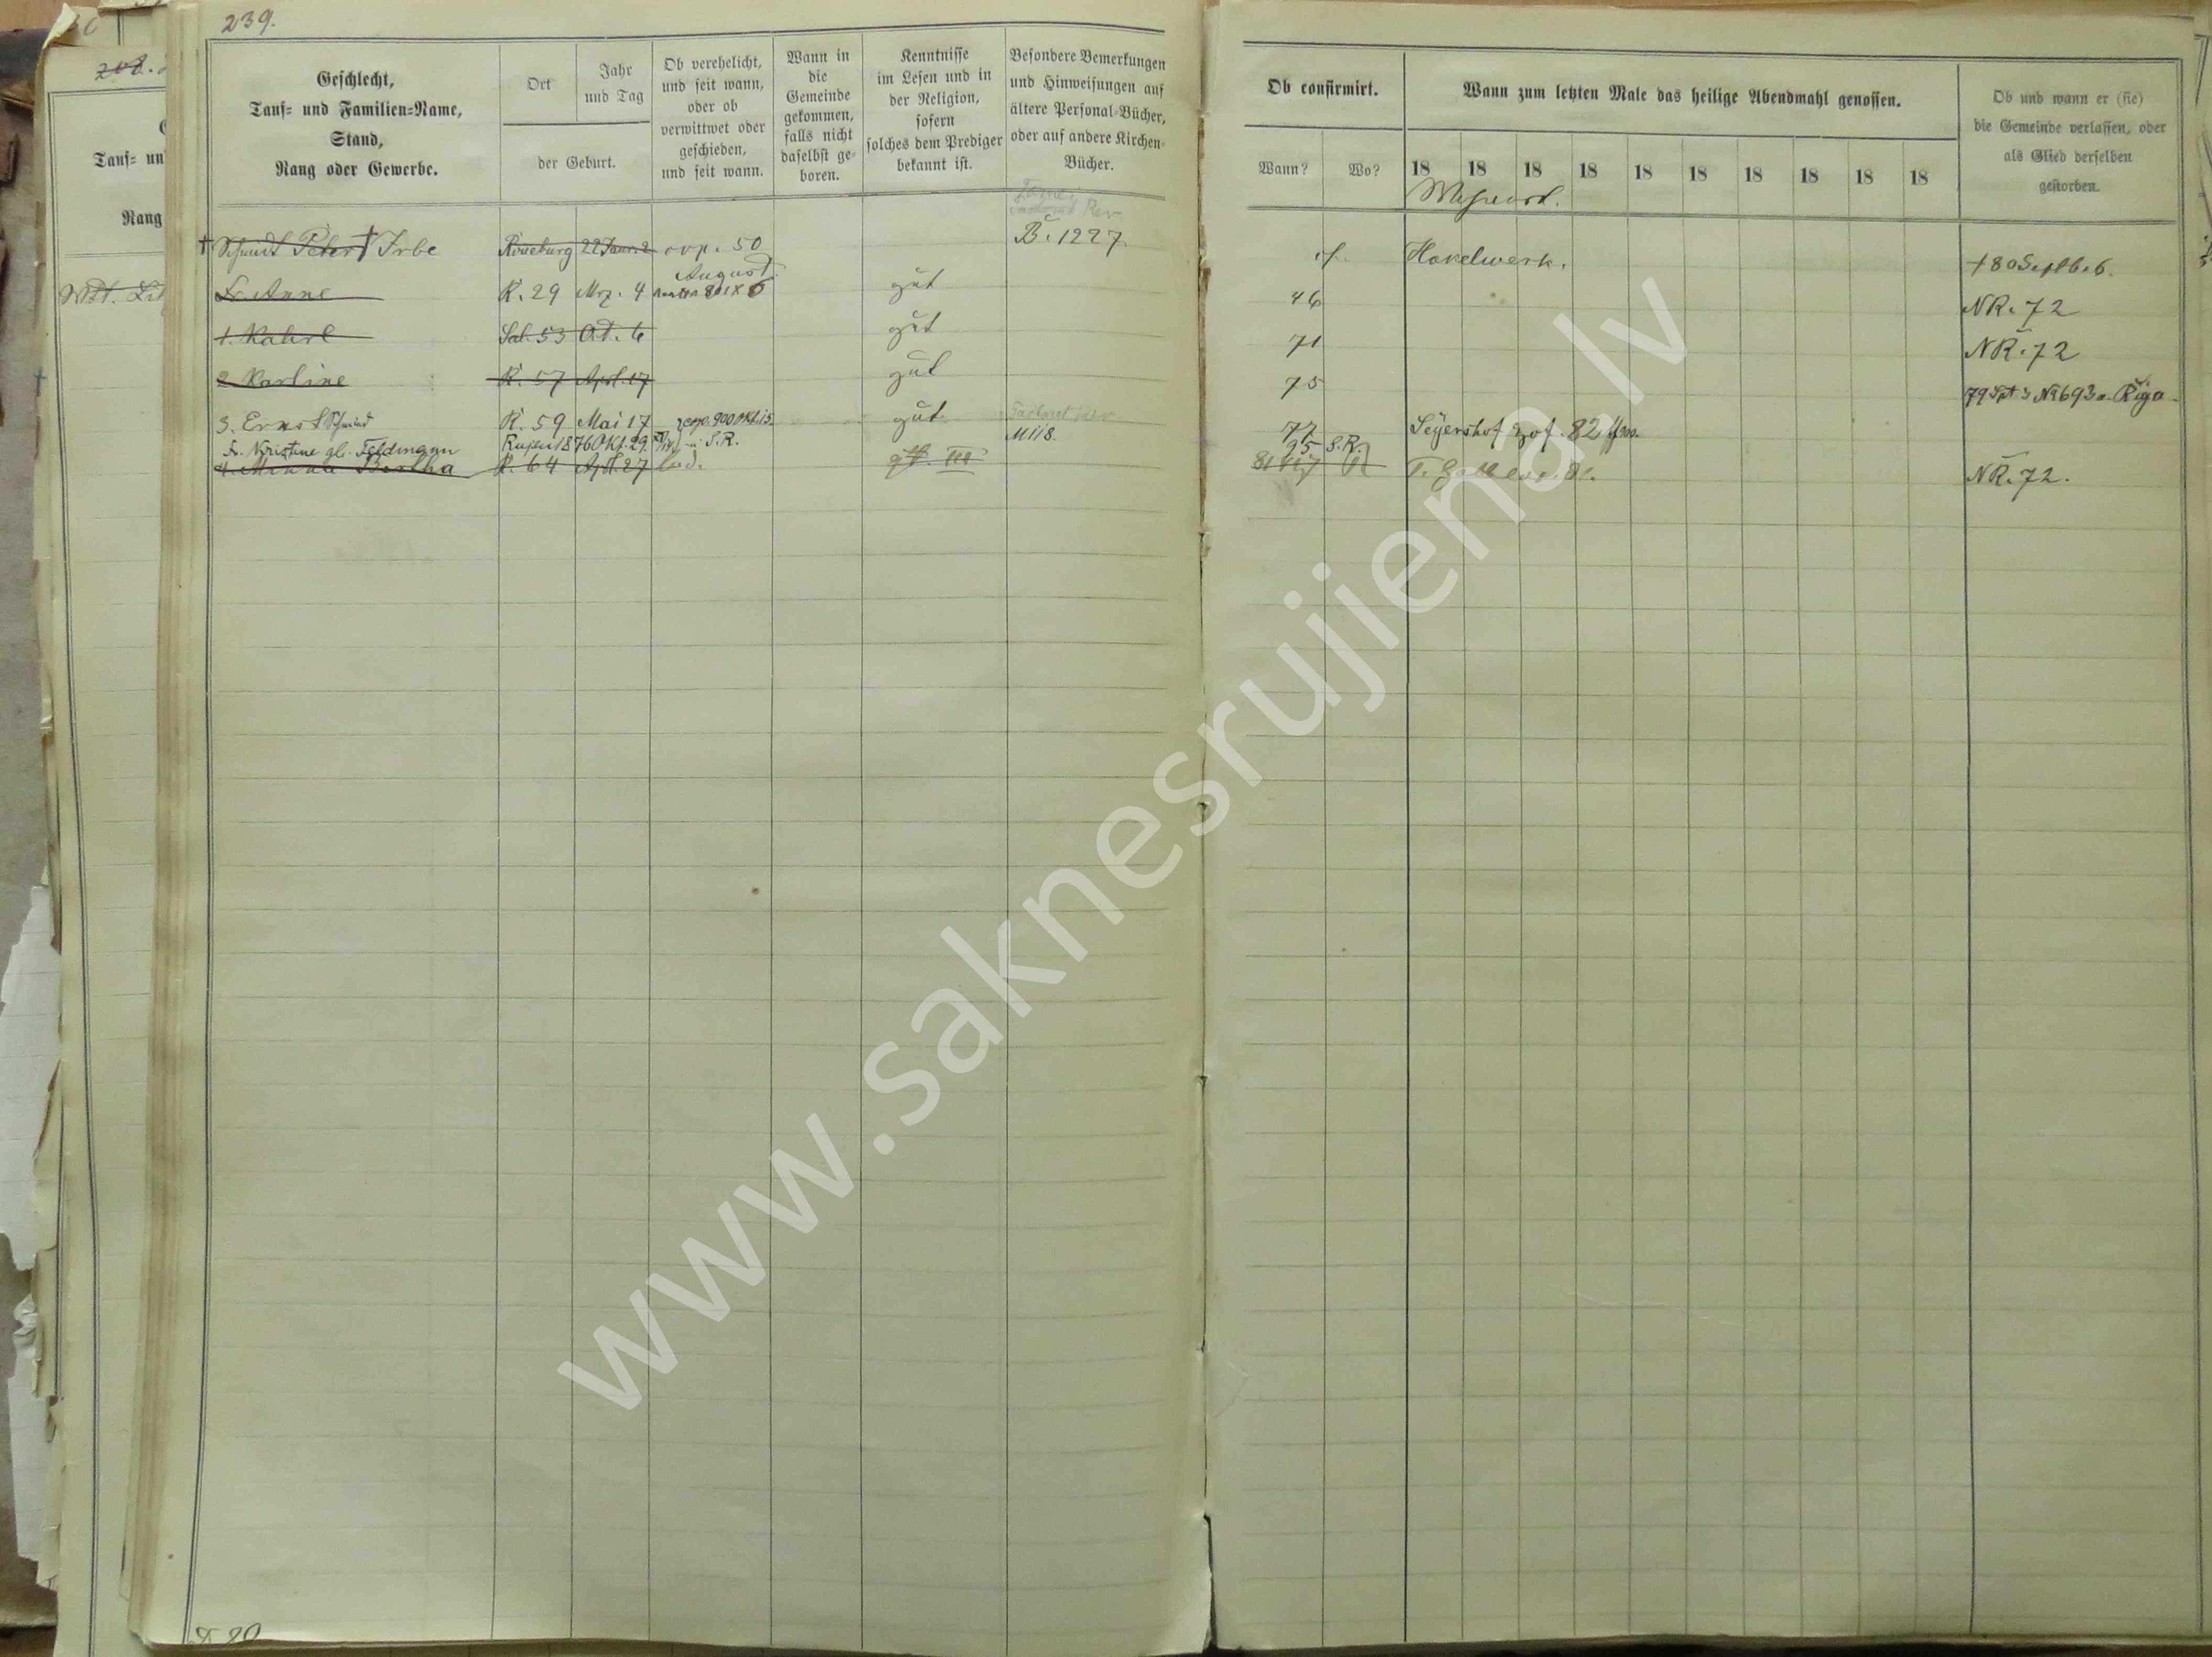 239.
208.
Geschlecht,
Tauf- und Familien-Name,
Stand,
Rang oder Gewerbe.
Ort
Jahr
und Tag
der Geburt.
Ob verehelicht,
und seit wann,
oder ob
verwittwet oder
geschieden,
und seit wann.
Wann in
die
Gemeinde
gekommen,
falls nicht
daselbst ge-
boren.
Kenntnisse
im Lesen und in
der Religion,
sofern
solches dem Prediger
bekannt ist.
Besondere Bemerkungen
und Hinweisungen auf
ältere Personal-Bücher,
oder auf andere Kirchen-
Bücher.
Ob confirmirt.
Wann?
Wo?
Wann zum letzten Male das heilige Abendmahl genossen.
18 18 18 18 18 18 18 18 18 18
Ob und wann er (sie)
die Gemeinde verlassen, oder
als Glied derselben
gestorben.
Tauf- un
Rang
Rev.
B. 1227
† Schmidt Peter † Irbe 22 Janr. 2 cop. 50 Hakelwerk. † 80 Septb. 6.
August
Fr. Anne R. 29 Mrz. 4 gut 46 NR. 72
1. Kahrl Sal. 53 Oct. 6 gut 71 NR. 72
2 Karline R. 57 Apl. 17 gut 75 79 Spt 3 No 693 a. Riga
3. Ernst Schmid R. 59 Mai 17 cop. 900 Okt. 15 gut 77 Seyershof 82
Fr. Kristine gb. Feldmann Rujen 1876 Okt. 29. S.R. M 118. 95 S.R.
4. Minna Bertha R. 64 Apl. 27 led. III 81 R NR. 72.
www.saknesrujiena.lv